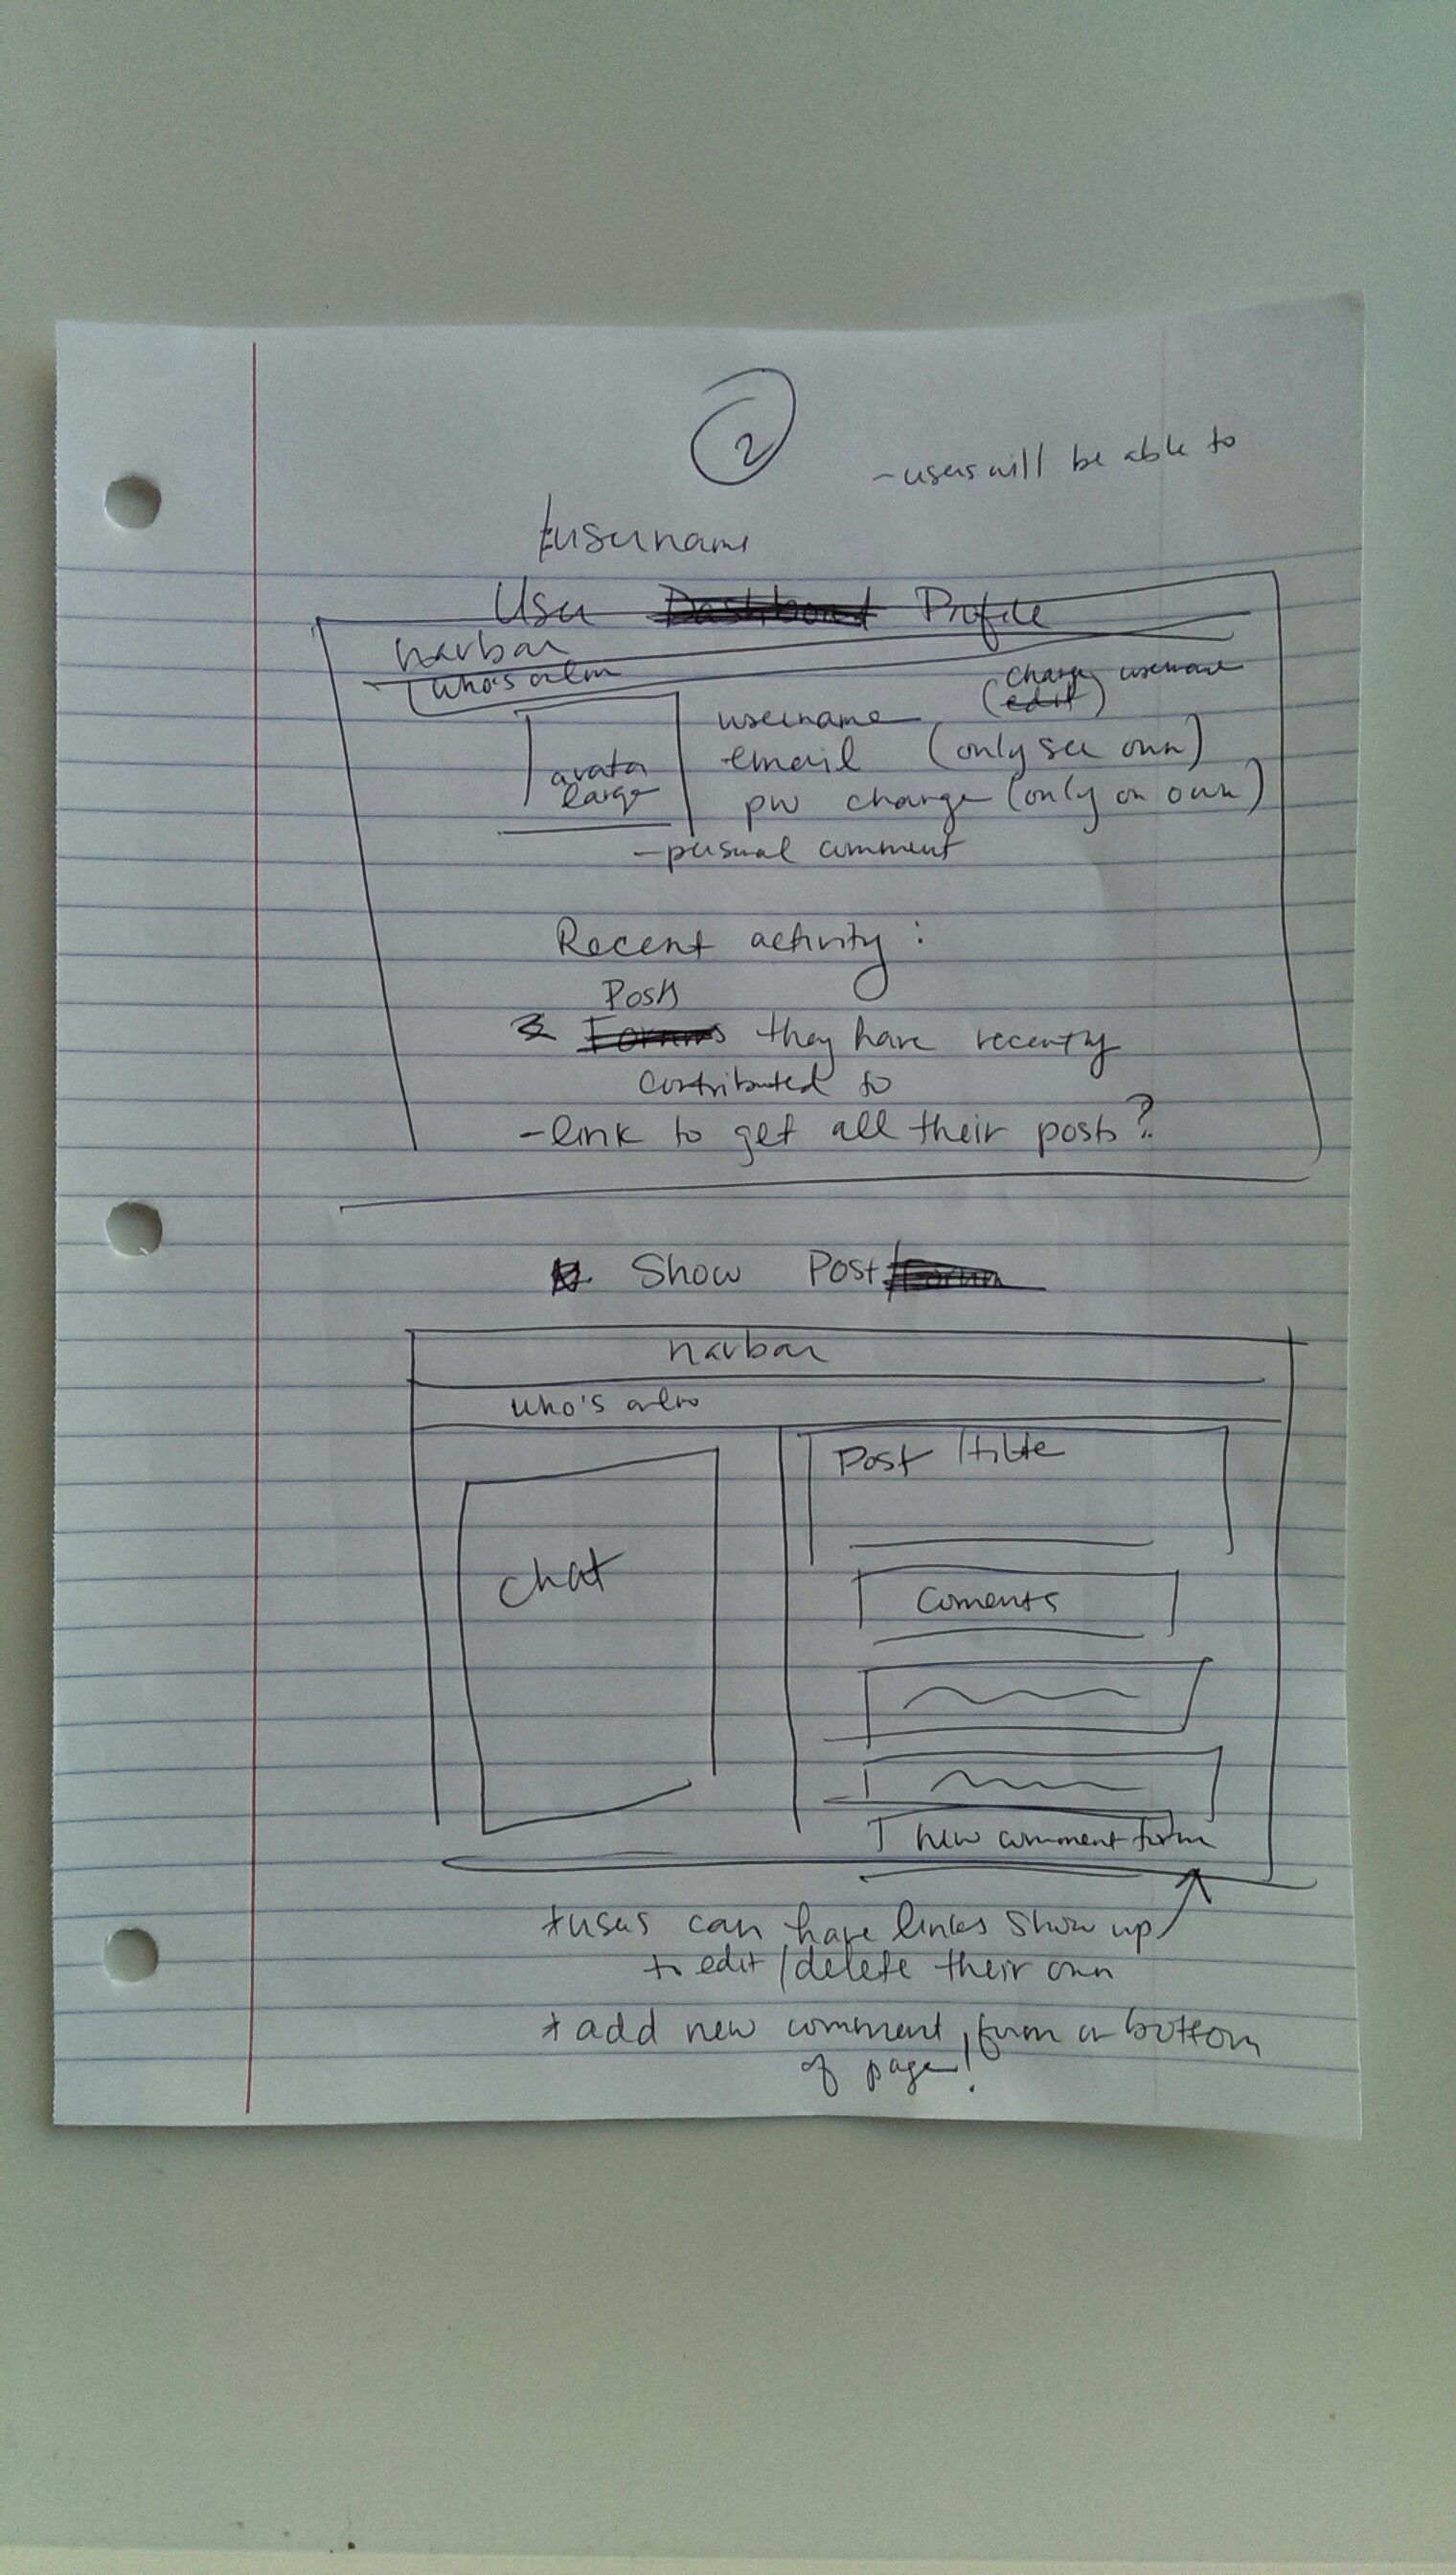 2
- users will be able to
/username
User Dashboard Profile
navbar
who's online
change username
(edit)
username
email (only see own)
pw change (only on own)
avatar
large
- personal comment
Recent activity:
Posts
Forums they have recently
contributed to
- link to get all their posts?
Show Post/Forum
navbar
who's online
Post / title
chat
Coments
new comment form
* users can have links show up
to edit/delete their own
* add new comment, form on bottom
of page!